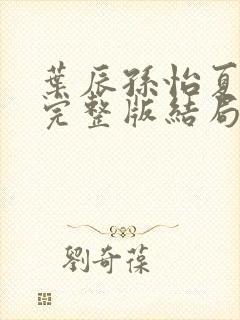 葉辰孫怡夏
完整版結局
劉奇葆